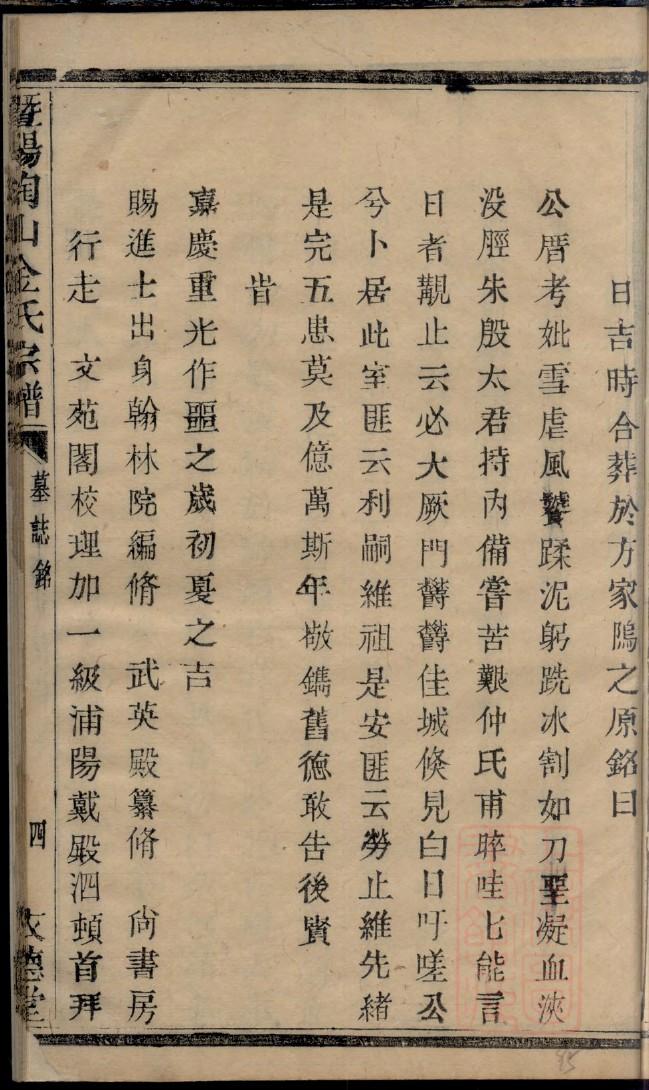 日吉時合葬於方家隖之原銘曰
公厝考妣雪虐風饕蹂泥躬跣冰割如刀堊凝血浹
没脛朱殷太君持内備嘗苦艱仲氏甫晬哇匕能言
日者觀止云必大厥門欝欝佳城倏見白日吁嗟公
兮卜居此室匪云利嗣維祖是安匪云勞止維先緒
是完五患莫及億萬斯年敬鐫舊德敢告後賢
旹
嘉慶重光作噩之歲初夏之吉
賜進士出身翰林院編脩 武英殿纂脩 尙書房
行走 文苑閣校理加一級浦陽戴殿泗頓首拜
暨陽陶山金氏宗譜 墓誌銘 四 文德堂